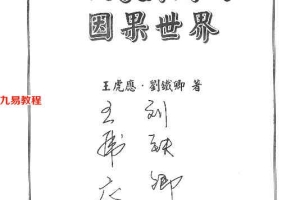 因果世界
王虎應·劉鐵卿 著
九易教程
王 刘
虎 铁
应 卿